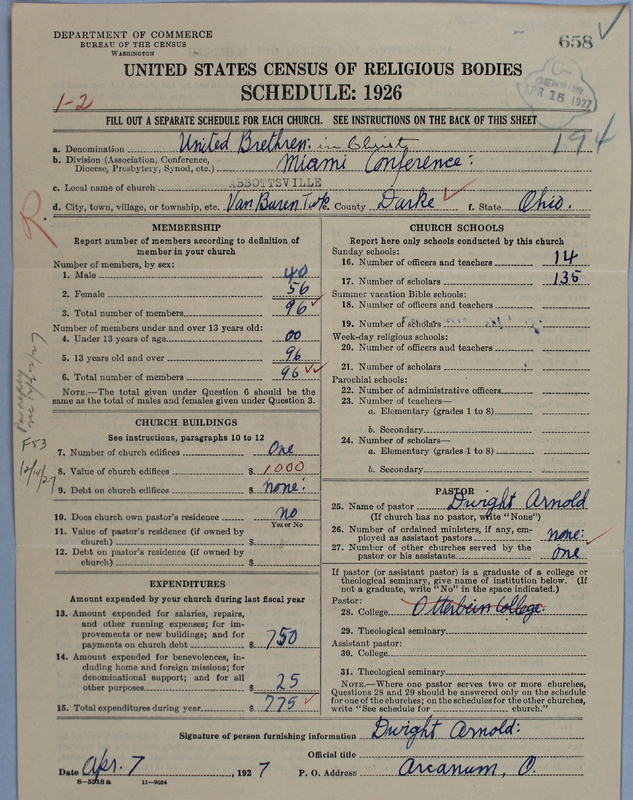 DEPARTMENT OF COMMERCE
BUREAU OF THE CENSUS
WASHINGTON
658
UNITED STATES CENSUS OF RELIGIOUS BODIES
SCHEDULE: 1926
1-2
APR 15 1927
FILL OUT A SEPARATE SCHEDULE FOR EACH CHURCH. SEE INSTRUCTIONS ON THE BACK OF THIS SHEET
194
a. Denomination United Brethren: in Christ
b. Division (Association, Conference, Diocese, Presbytery, Synod, etc.) Miami Conference:
c. Local name of church ABBOTTSVILLE
d. City, town, village, or township, etc. Van Buren Twp. e. County Darke f. State Ohio.
R.
MEMBERSHIP
Report number of members according to definition of
member in your church
Number of members, by sex:
1. Male 40
2. Female 56
3. Total number of members 96
Number of members under and over 13 years old:
4. Under 13 years of age 00
5. 13 years old and over 96
6. Total number of members 96
NOTE.—The total given under Question 6 should be
same as the total of males and females given under Question 3.
CHURCH BUILDINGS
See instructions, paragraphs 10 to 12
7. Number of church edifices One
8. Value of church edifices $ 1000
9. Debt on church edifices $ none:
10. Does church own pastor's residence no
Yes or No
11. Value of pastor's residence (if owned by
church) $
12. Debt on pastor's residence (if owned by
church) $
F53
12/11/27
EXPENDITURES
Amount expended by your church during last fiscal year
13. Amount expended for salaries, repairs,
and other running expenses; for im-
provements or new buildings; and for
payments on church debt $ 750
14. Amount expended for benevolences, in-
cluding home and foreign missions; for
denominational support; and for all
other purposes $ 25
15. Total expenditures during year $ 775
CHURCH SCHOOLS
Report here only schools conducted by this church
Sunday schools:
16. Number of officers and teachers 14
17. Number of scholars 135
Summer vacation Bible schools:
18. Number of officers and teachers
19. Number of scholars
Week-day religious schools:
20. Number of officers and teachers
21. Number of scholars
Parochial schools:
22. Number of administrative officers
23. Number of teachers—
a. Elementary (grades 1 to 8)
b. Secondary
24. Number of scholars—
a. Elementary (grades 1 to 8)
b. Secondary
PASTOR
25. Name of pastor Dwight Arnold
(If church has no pastor, write "None")
26. Number of ordained ministers, if any, em-
ployed as assistant pastors none:
27. Number of other churches served by the
pastor or his assistants one
If pastor (or assistant pastor) is a graduate of a college or
theological seminary, give name of institution below. (If
not a graduate, write "No" in the space indicated.)
Pastor:
28. College Otterbein College.
29. Theological seminary
Assistant pastor:
30. College
31. Theological seminary
NOTE.—Where one pastor serves two or more churches,
Questions 28 and 29 should be answered only on the schedule
for one of the churches; on the schedules for the other churches,
write "See schedule for church."
Signature of person furnishing information Dwight Arnold:
Official title
Date Apr. 7, 1927 P. O. Address Arcanum, O.
8-5318a 11-9054